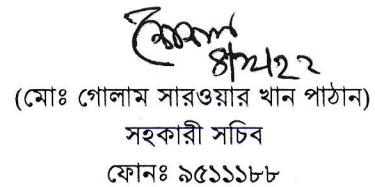 ৪/১২/২২
(মোঃ গোলাম সারওয়ার খান পাঠান)
সহকারী সচিব
ফোনঃ ৯৫১১১৮৮